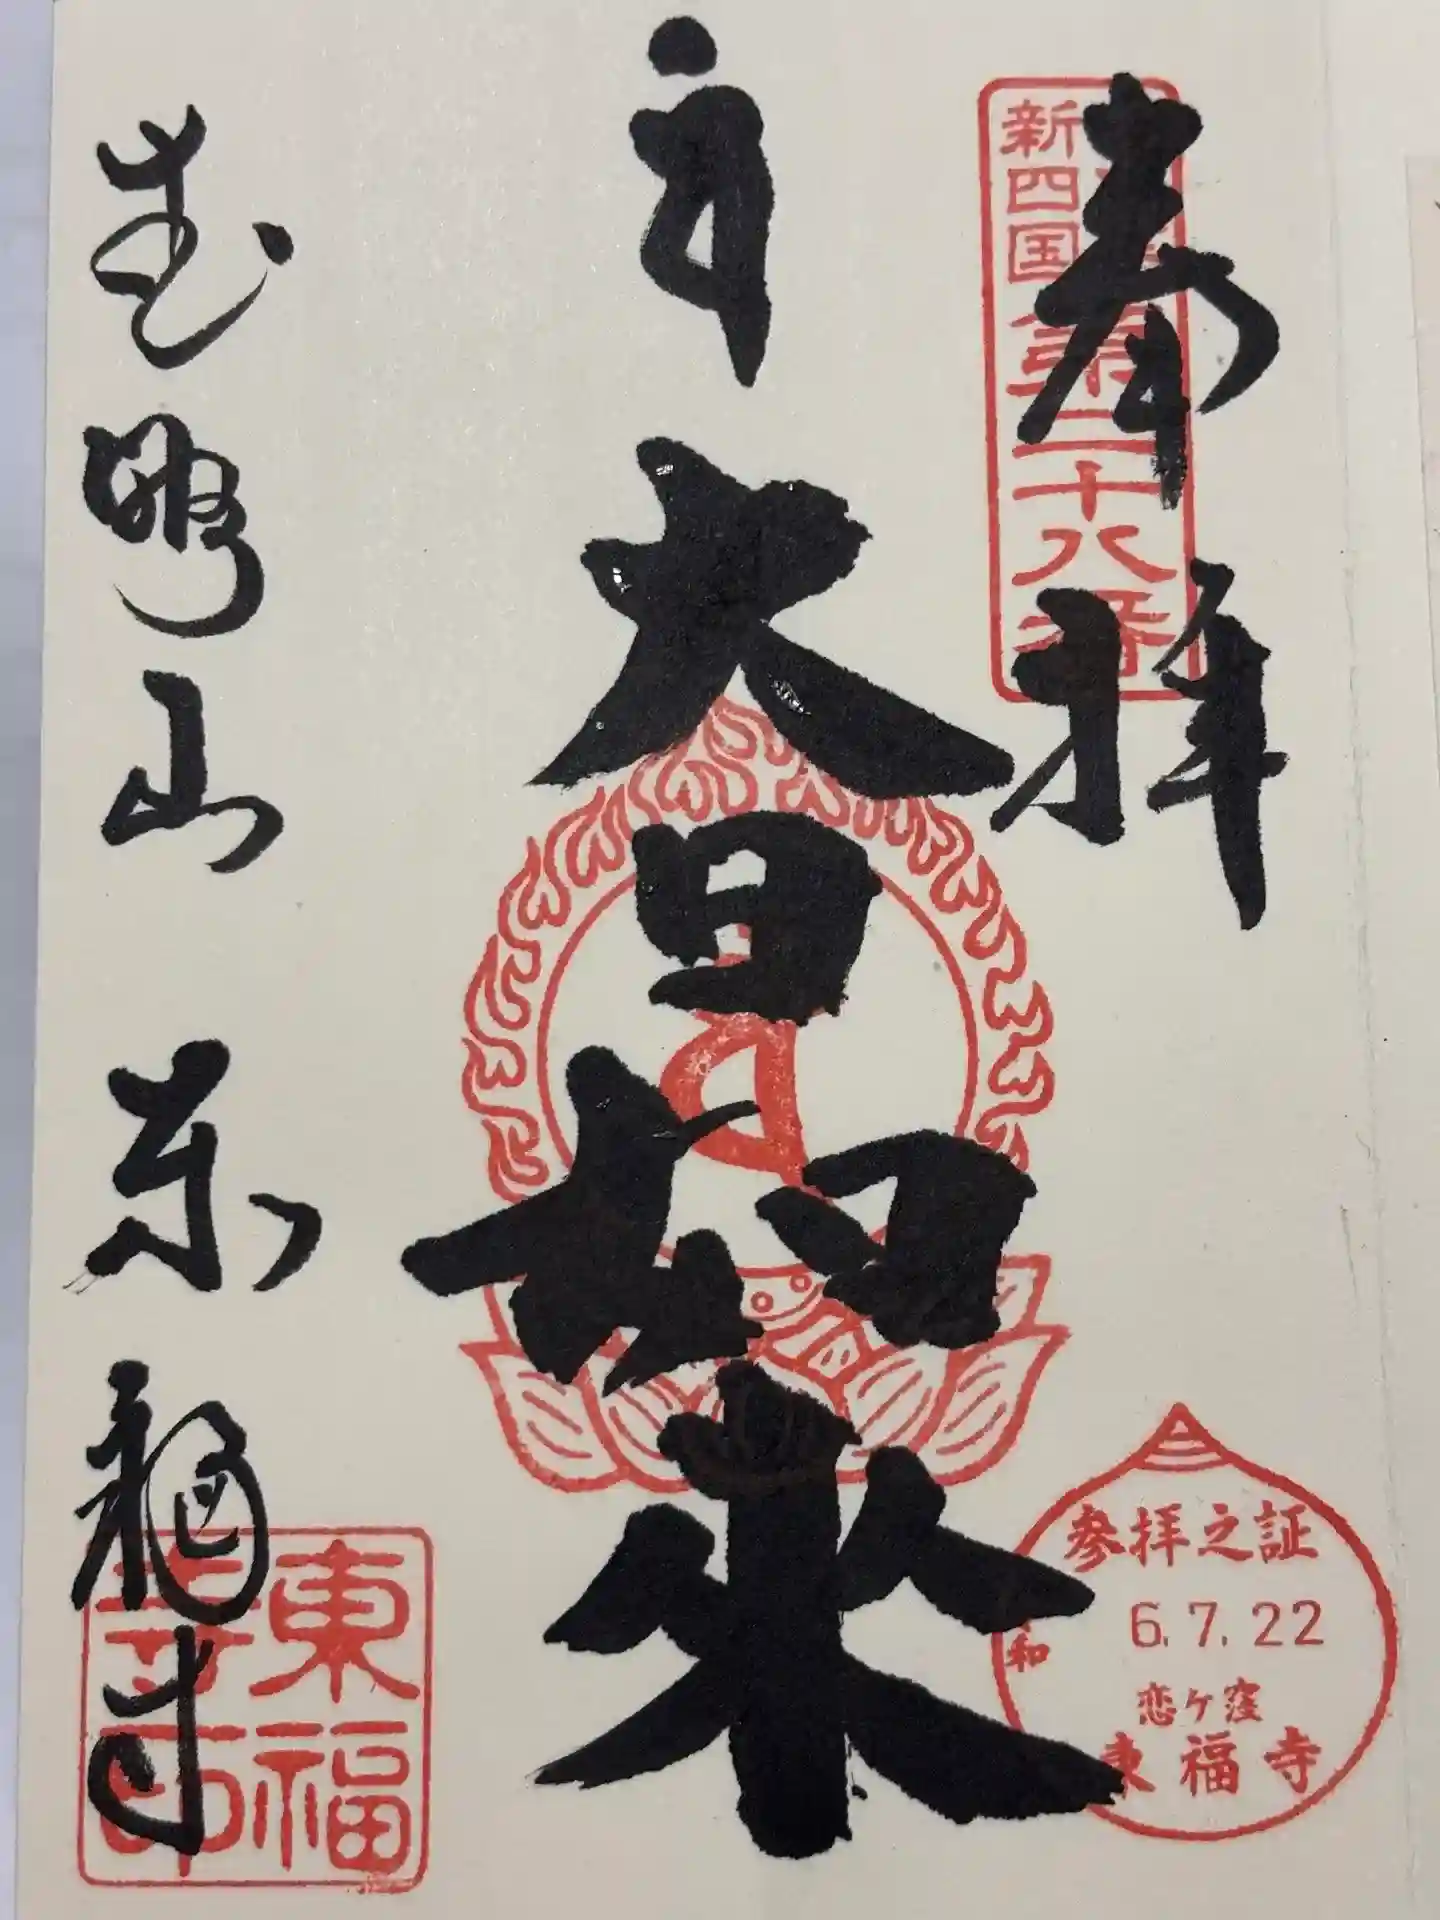 奉拝
新四国
第二十八番
大日如来
参拝之証
和
6.7.22
恋ケ窪
東福寺
山 東福寺
東福
寺印